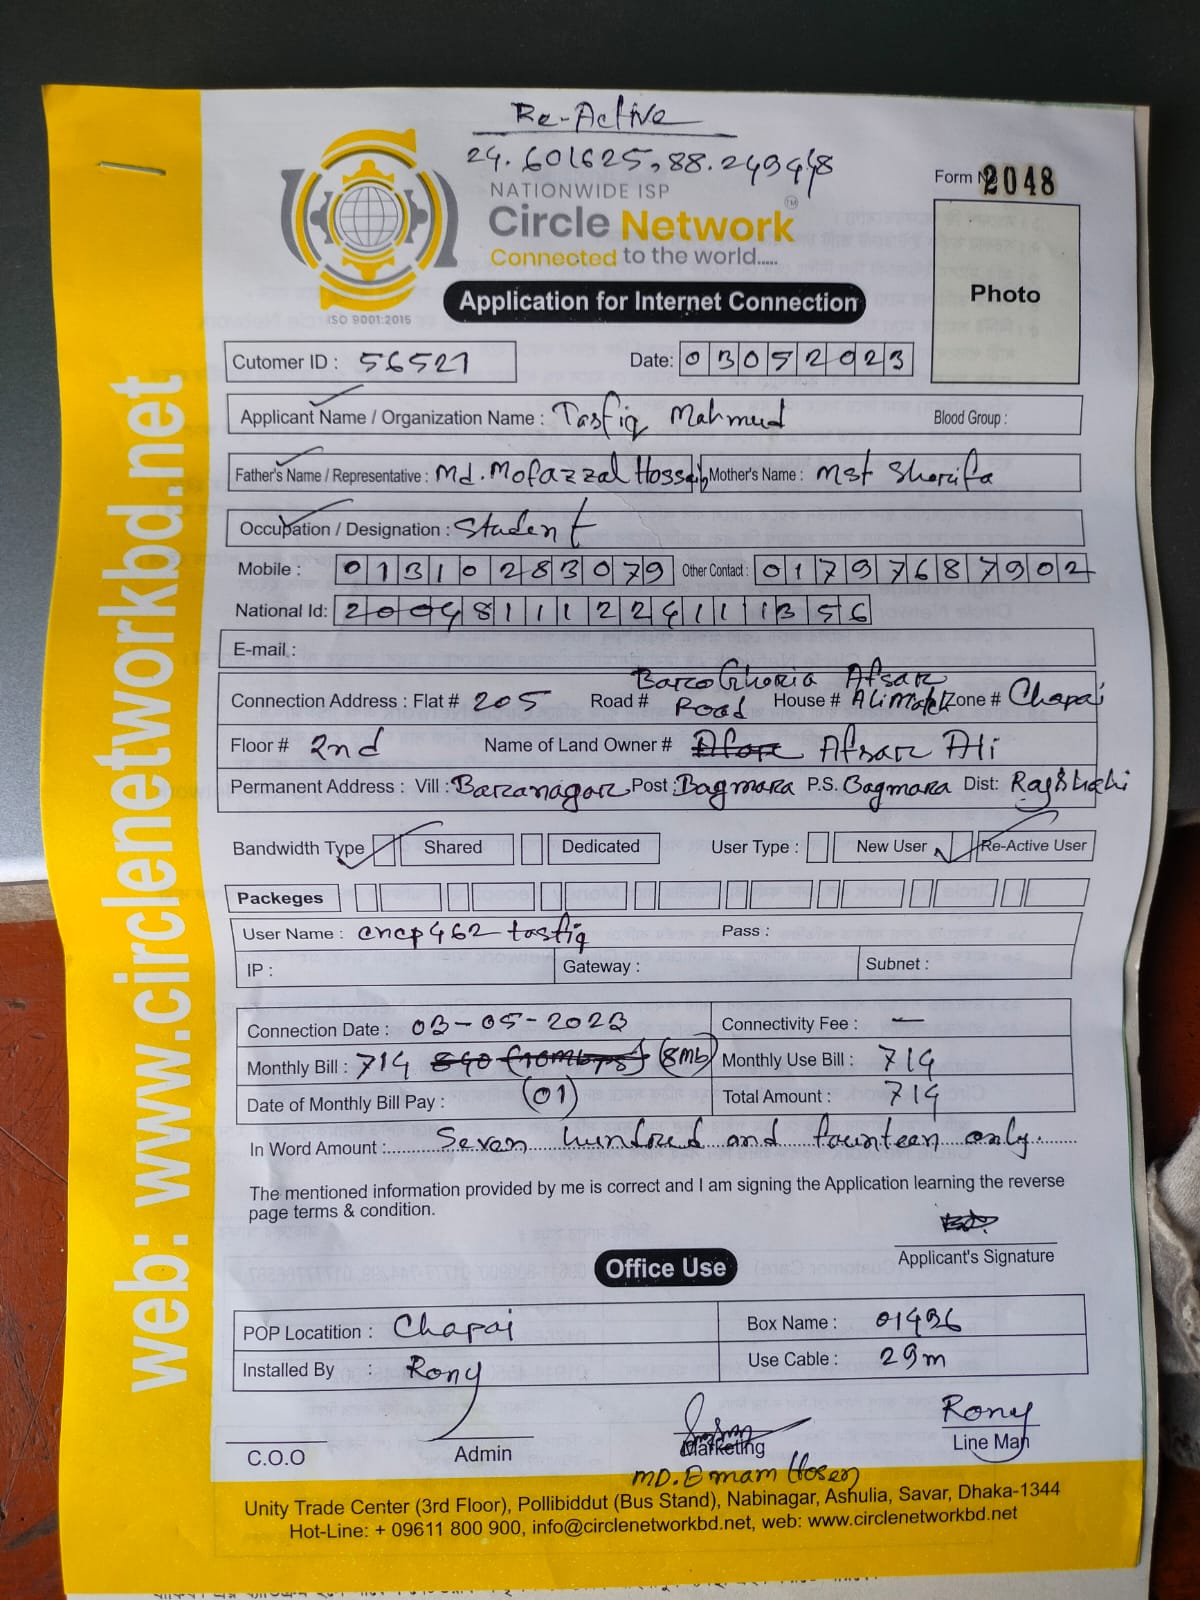 Re-Active
24.601625,88.249448
NATIONWIDE ISP
Circle Network TM
Connected to the world.....
ISO 9001:2015
Form No 2048
Photo
Application for Internet Connection
Cutomer ID : 56521 Date: 03052023
Applicant Name / Organization Name : Tasfiq Mahmud Blood Group :
Father's Name / Representative : Md. Mofazzal Hossain Mother's Name : Mst Sharifa
Occupation / Designation : Student
Mobile : 01310283079 Other Contact : 01797687902
National Id: 20048111224111356
E-mail :
Connection Address : Flat # 205 Road # Road House # Afsar Ali Zone # Chapai
Floor # 2nd Name of Land Owner # Afsar Ali
Permanent Address : Vill : Baranagar Post : Bagmara P.S. Bagmara Dist: Rajshahi
Bandwidth Type Shared Dedicated User Type : New User Re-Active User
Packeges
User Name : cncp462 tasfiq Pass :
IP : Gateway : Subnet :
Connection Date : 03-05-2023 Connectivity Fee : —
Monthly Bill : 714 840 (10mbps) (8mb) Monthly Use Bill : 714
Date of Monthly Bill Pay : (01) Total Amount : 714
In Word Amount :.......Seven hundred and fourteen only.......
The mentioned information provided by me is correct and I am signing the Application learning the reverse
page terms & condition.
Applicant's Signature
Office Use
POP Locatition : Chapai Box Name : 01436
Installed By : Rony Use Cable : 29m
Rony
C.O.O Admin Marketing Line Man
MD. Emam Hosen
Unity Trade Center (3rd Floor), Pollibiddut (Bus Stand), Nabinagar, Ashulia, Savar, Dhaka-1344
Hot-Line: + 09611 800 900, info@circlenetworkbd.net, web: www.circlenetworkbd.net
web: www.circlenetworkbd.net